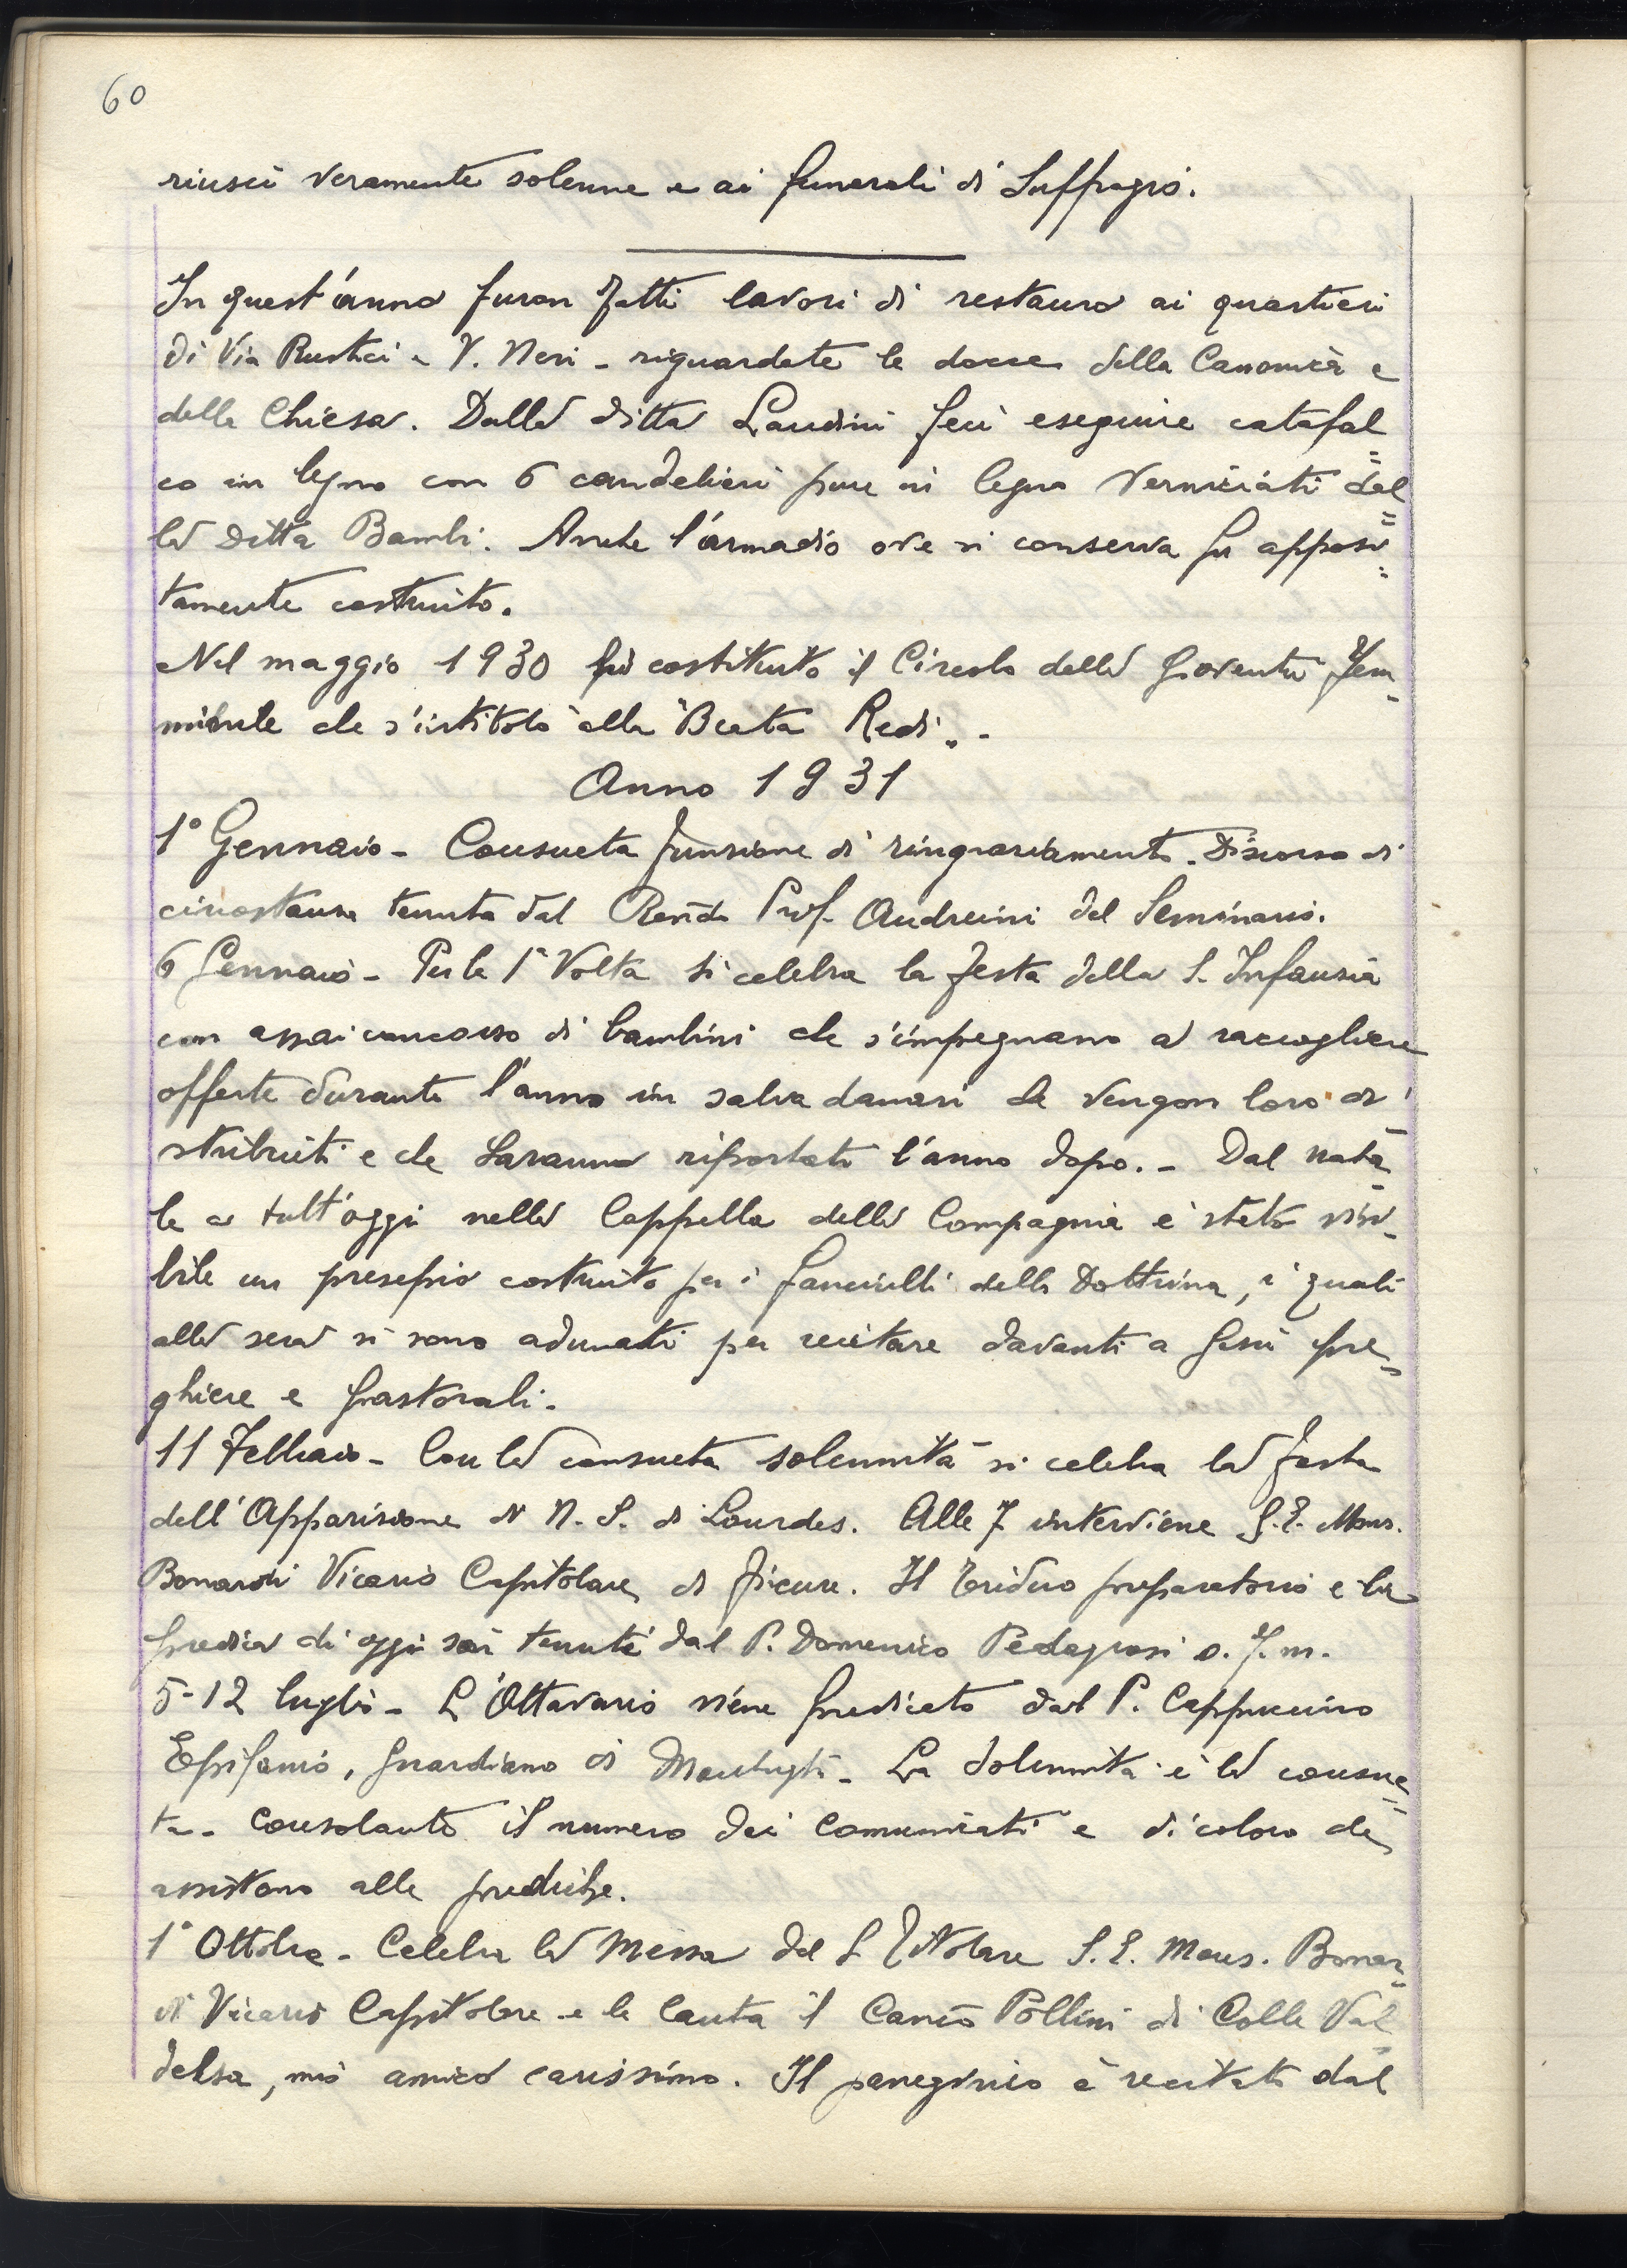 60
riuscì veramente solenne e ai funerali di Suffragio.
In quest'anno furon fatti lavori di restauro ai quartieri
di Via Rustici e V. Neri - riguardate le docce della Canonica e
della Chiesa. Dalla ditta Landini feci eseguire catafal=
co in legno con 6 candelieri pure in legno verniciati dal=
la Ditta Bambi. Anche l'armadio ove si conserva fu apposi=
tamente costruito.
Nel maggio 1930 fu costituito il Circolo della Gioventù Fem-
minile che s'intitolò alla "Beata Redi". -
Anno 1931
1° Gennaio - Consueta funzione di ringraziamento. Discorso di
circostanza tenuta dal Rendo Prof. Andreini del Seminario.
6 Gennaio - Per la 1ª Volta si celebra la festa della S. Infanzia
con assai concorso di bambini che s'impegnano a raccogliere
offerte durante l'anno in salva danari che vengon loro di
stribuiti e che saranno riportati l'anno dopo. - Dal nata-
le a tutt'oggi nella Cappella della Compagnia è stato visi-
bile un presepio costruito per i fanciulli della Dottrina, i quali
alla sera si sono adunati per recitare davanti a Gesù pre-
ghiere e pastorali.
11 Febbraio - Con la consueta solennità si celebra la festa
dell'Apparizione di N. S. di Lourdes. Alle 7 interviene S. E. Mons.
Bonardi Vicario Capitolare di Firenze. Il Triduo preparatorio e la
predica di oggi tenuti dal P. Domenico Pedagrosi o. f. m.
5-12 luglio - L'Ottavario viene predicato dal P. Cappuccino
Epifanio, guardiano di Montughi - La solennità è la consue=
ta. Consolante il numero dei Comunicati e di coloro che
assistono alle prediche.
1° Ottobre - Celebra la Messa del S. Titolare S. E. Mons. Bonar-
di Vicario Capitolare e la canta il Canco Pollini di Colle Val
delsa, mio amico carissimo. Il panegirico è recitato dal